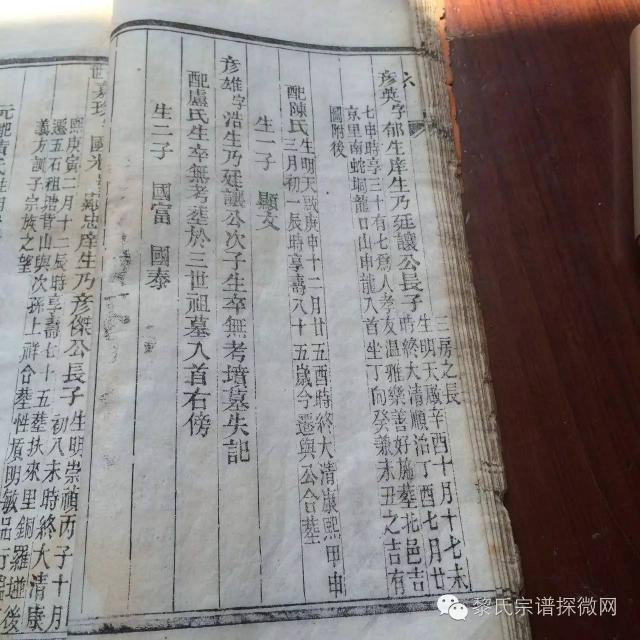 彥英字郁生庠生乃廷讓公長子
三房之長
生明天啟辛酉十月十七未
時終大清順治丁酉七月廿
七申時享三十有七為人孝友溫雅樂善好施葬北邑吉
京里南蛇垌龍口山申龍入首坐丁向癸兼未丑之吉有
圖附後
配陳氏生明天啟庚申十二月廿五酉時終大清康熙甲申
三月初一辰時享壽八十五歲今遷與公合墓
生一子 顯文
彥雄字浩生乃廷讓公次子生卒無考墳墓失記
配盧氏生卒無考葬於三世祖墓入首右傍
生二子 國富 國泰
忠庠生乃彥傑公長子
生明崇禎丙子十月
初八未時終大清康
熙庚寅二月十二辰時享壽七十五葬扶來里銅羅
遷五石祖地昔山與次孫上祥合墓性質明敏品行
義方訓子宗族之望
黎氏宗谱探微网